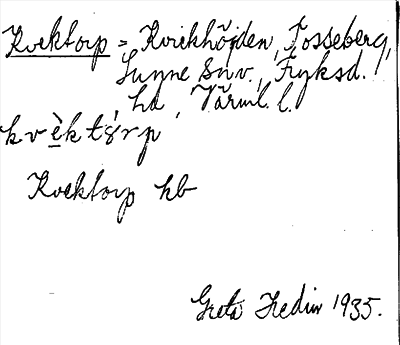 Kvektorp = Kvickhöjden, Tosseberg,
Sunne snv., Fryksd.
hd, Värml. l.
kvèktȯrp
Kvektorp hb
Greta Hedin 1935.